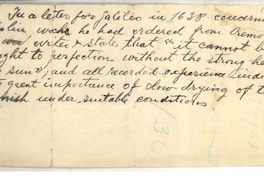 In a letter for Galileo in 1638 concerning
violin, wch he had ordered from Cremona
writer states, that "it cannot be
brought to perfection without the strong heat
sun"; and all recorded experience indi
great importance of slow drying of t
under suitable conditions.
136